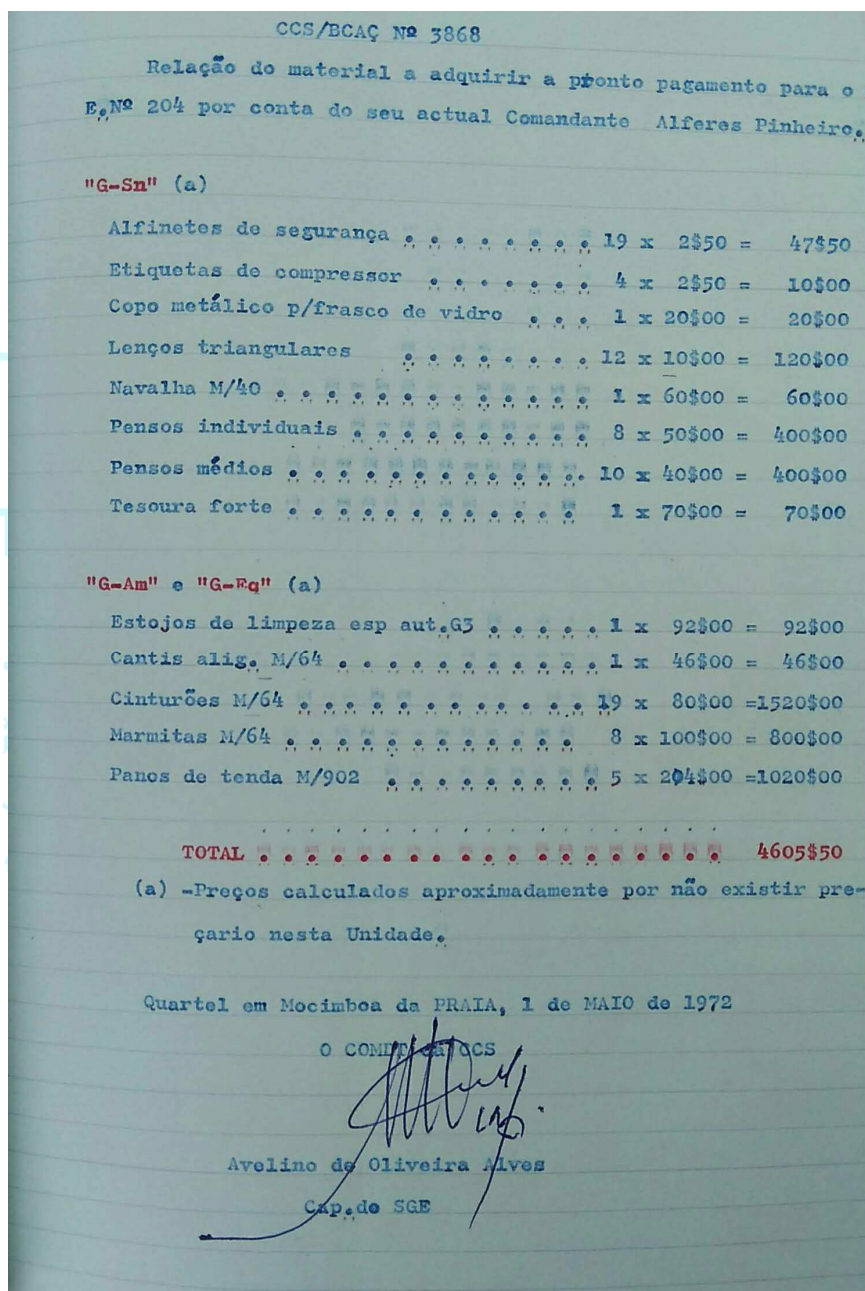 CCS/BCAÇ Nº 3868
Relação do material a adquirir a pronto pagamento para o
E.Nº 204 por conta do seu actual Comandante Alferes Pinheiro.
"G-Sn" (a)
Alfinetes de segurança . . . . . . . . 19 x 2$50 = 47$50
Etiquetas de compressor . . . . . . . 4 x 2$50 = 10$00
Copo metálico p/frasco de vidro . . . 1 x 20$00 = 20$00
Lenços triangulares . . . . . . . . 12 x 10$00 = 120$00
Navalha M/40 . . . . . . . . . . . . . 1 x 60$00 = 60$00
Pensos individuais . . . . . . . . . . 8 x 50$00 = 400$00
Pensos médios . . . . . . . . . . . . 10 x 40$00 = 400$00
Tesoura forte . . . . . . . . . . . 1 x 70$00 = 70$00
"G-Am" e "G-Eq" (a)
Estojos de limpeza esp aut.G3 . . . . . 1 x 92$00 = 92$00
Cantis alig. M/64 . . . . . . . . . . . 1 x 46$00 = 46$00
Cinturões M/64 . . . . . . . . . . . . 19 x 80$00 =1520$00
Marmitas M/64 . . . . . . . . . . . . 8 x 100$00 = 800$00
Panos de tenda M/902 . . . . . . . . . 5 x 204$00 =1020$00
TOTAL . . . . . . . . . . . . . . . . . . 4605$50
(a) -Preços calculados aproximadamente por não existir pre-
çario nesta Unidade.
Quartel em Mocimboa da PRAIA, 1 de MAIO de 1972
O COMDT CCS
Avelino de Oliveira Alves
Cap.do SGE